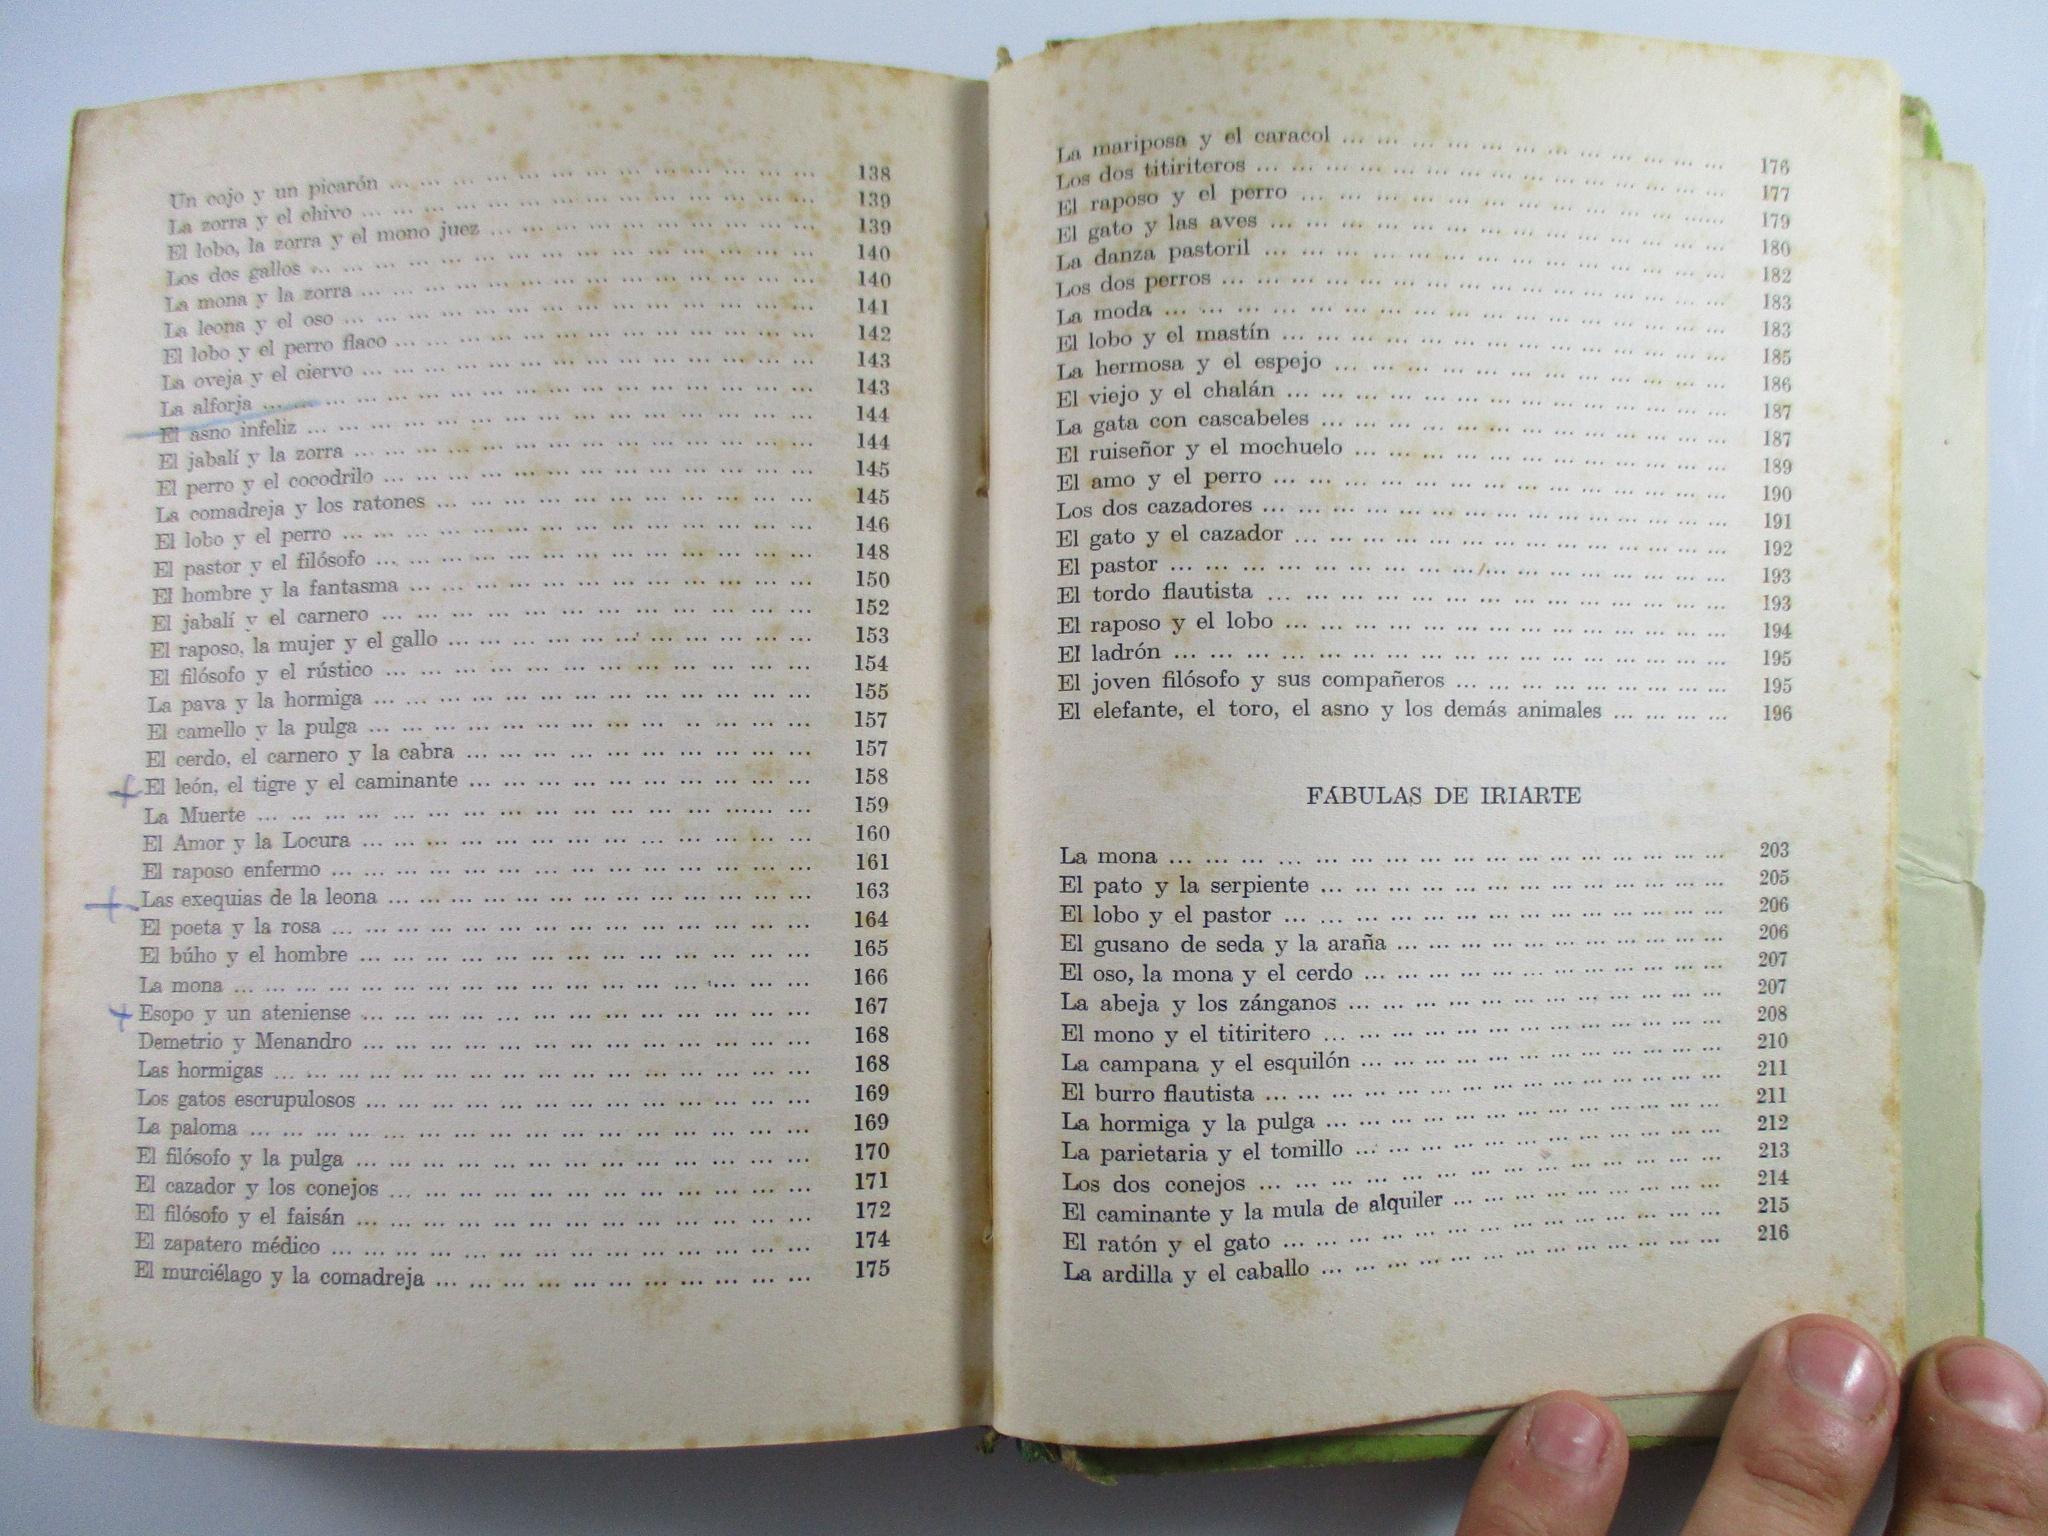 Un cojo y un picarón ... 138
La zorra y el chivo ... 139
El lobo, la zorra y el mono juez ... 139
Los dos gallos ... 140
La mona y la zorra ... 140
La leona y el oso ... 141
El lobo y el perro flaco ... 142
La oveja y el ciervo ... 143
La alforja ... 143
El asno infeliz ... 144
El jabalí y la zorra ... 144
El perro y el cocodrilo ... 145
La comadreja y los ratones ... 145
El lobo y el perro ... 146
El pastor y el filósofo ... 148
El hombre y la fantasma ... 150
El jabalí y el carnero ... 152
El raposo, la mujer y el gallo ... 153
El filósofo y el rústico ... 154
La pava y la hormiga ... 155
El camello y la pulga ... 157
El cerdo, el carnero y la cabra ... 157
El león, el tigre y el caminante ... 158
La Muerte ... 159
El Amor y la Locura ... 160
El raposo enfermo ... 161
Las exequias de la leona ... 163
El poeta y la rosa ... 164
El búho y el hombre ... 165
La mona ... 166
Esopo y un ateniense ... 167
Demetrio y Menandro ... 168
Las hormigas ... 168
Los gatos escrupulosos ... 169
La paloma ... 169
El filósofo y la pulga ... 170
El cazador y los conejos ... 171
El filósofo y el faisán ... 172
El zapatero médico ... 174
El murciélago y la comadreja ... 175
La mariposa y el caracol ... 176
Los dos titiriteros ... 177
El raposo y el perro ... 179
El gato y las aves ... 180
La danza pastoril ... 182
Los dos perros ... 183
La moda ... 183
El lobo y el mastín ... 185
La hermosa y el espejo ... 186
El viejo y el chalán ... 187
La gata con cascabeles ... 187
El ruiseñor y el mochuelo ... 189
El amo y el perro ... 190
Los dos cazadores ... 191
El gato y el cazador ... 192
El pastor ... 193
El tordo flautista ... 193
El raposo y el lobo ... 194
El ladrón ... 195
El joven filósofo y sus compañeros ... 195
El elefante, el toro, el asno y los demás animales ... 196
FÁBULAS DE IRIARTE
La mona ... 203
El pato y la serpiente ... 205
El lobo y el pastor ... 206
El gusano de seda y la araña ... 206
El oso, la mona y el cerdo ... 207
La abeja y los zánganos ... 207
El mono y el titiritero ... 208
La campana y el esquilón ... 210
El burro flautista ... 211
La hormiga y la pulga ... 211
La parietaria y el tomillo ... 212
Los dos conejos ... 213
El caminante y la mula de alquiler ... 214
El ratón y el gato ... 215
La ardilla y el caballo ... 216